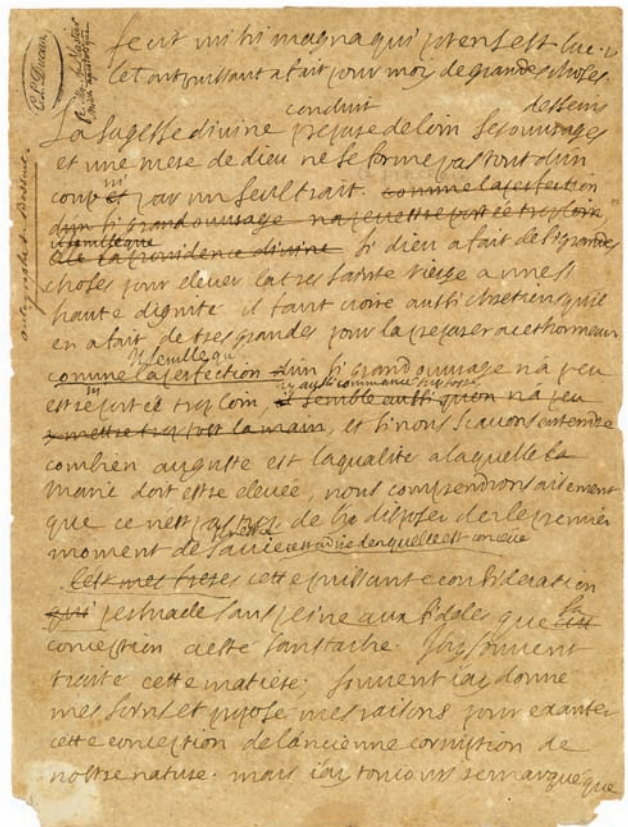 fecit mihi magna qui potens est. Luc.
le tout puissant a fait pour moy de grandes choses.
conduit desseins
La sagesse divine prepare de loin ses ouurages
et une mere de dieu ne se forme pas tout d'un
coup et par un seul trait. comme la perfection
d'un si grand ouurage n'a peu estre porté trop loin,
il semble que
que la providence divine si dieu a fait de si grandes
choses pour elever la tres sainte vierge a une si
haute dignité il faut croire aussi chrestiens qu'il
en a fait de tres grandes pour la preparer a cet honneur
Il semble qu
comme la perfection d'un si grand ouurage n'a peu
ni
estre porté trop loin, il semble aussi qu'on n'a peu
ny aussi commencé trop tost
y mettre trop tost la main, et si nous scauons entendre
combien auguste est la qualité a laquelle
Marie doit estre elevée, nous comprendrons aisement
que ce n'est pas trop de l'y disposer des le premier
moment de sa vie c'est a dire des qu'elle est conceue
C'est mes freres cette puissante consideration
qui persuade sans peine aux fideles que sa
conception a esté sans tache. J'ay souuent
traité cette matiere, souuent i'ay donné
mes soins et proposé mes raisons pour exanter
cette conception de l'ancienne corruption de
nostre nature. mais i'ay tousiours remarqué que
autographe de Bossuet.